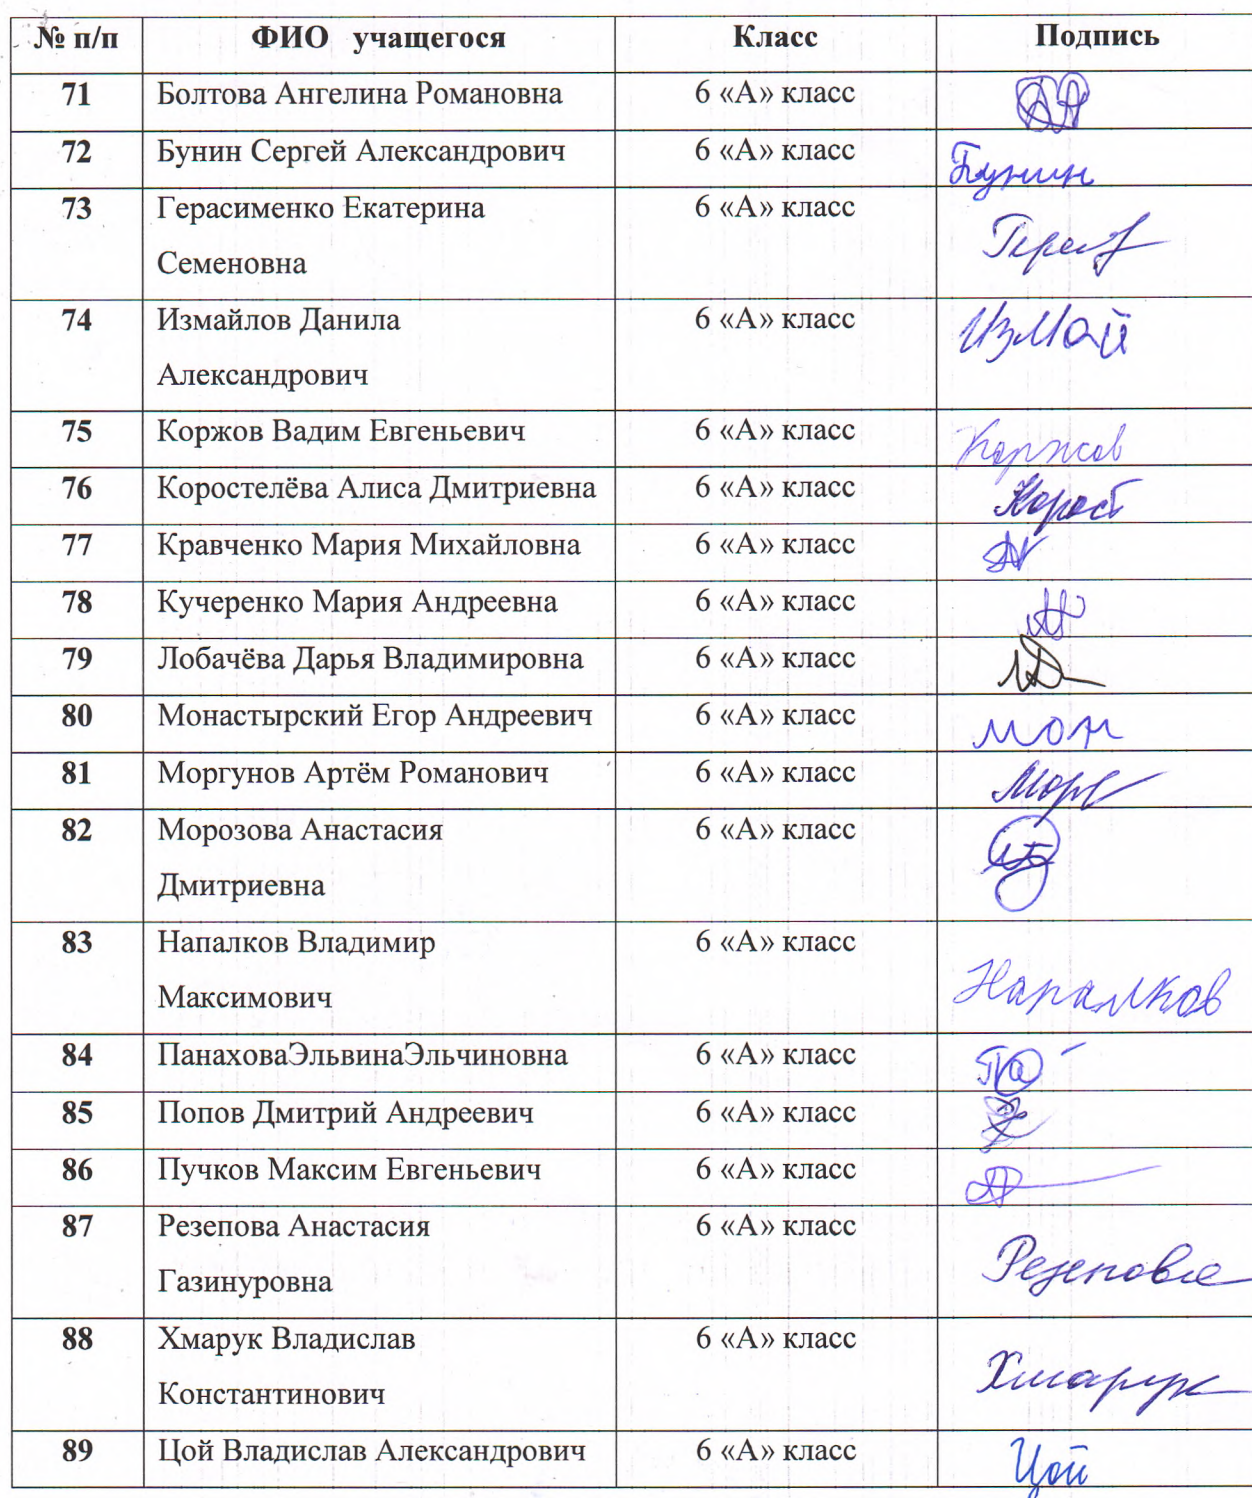 № п/п ФИО учащегося Класс Подпись
71 Болтова Ангелина Романовна 6 «А» класс
72 Бунин Сергей Александрович 6 «А» класс Бунин
73 Герасименко Екатерина 6 «А» класс
Семеновна
74 Измайлов Данила 6 «А» класс Измай
Александрович
75 Коржов Вадим Евгеньевич 6 «А» класс Коржов
76 Коростелёва Алиса Дмитриевна 6 «А» класс Корост
77 Кравченко Мария Михайловна 6 «А» класс
78 Кучеренко Мария Андреевна 6 «А» класс
79 Лобачёва Дарья Владимировна 6 «А» класс
80 Монастырский Егор Андреевич 6 «А» класс Мон
81 Моргунов Артём Романович 6 «А» класс Морг
82 Морозова Анастасия 6 «А» класс
Дмитриевна
83 Напалков Владимир 6 «А» класс
Максимович Напалков
84 ПанаховаЭльвинаЭльчиновна 6 «А» класс Па
85 Попов Дмитрий Андреевич 6 «А» класс
86 Пучков Максим Евгеньевич 6 «А» класс
87 Резепова Анастасия 6 «А» класс
Газинуровна Резепова
88 Хмарук Владислав 6 «А» класс
Константинович Хмарук
89 Цой Владислав Александрович 6 «А» класс Цой